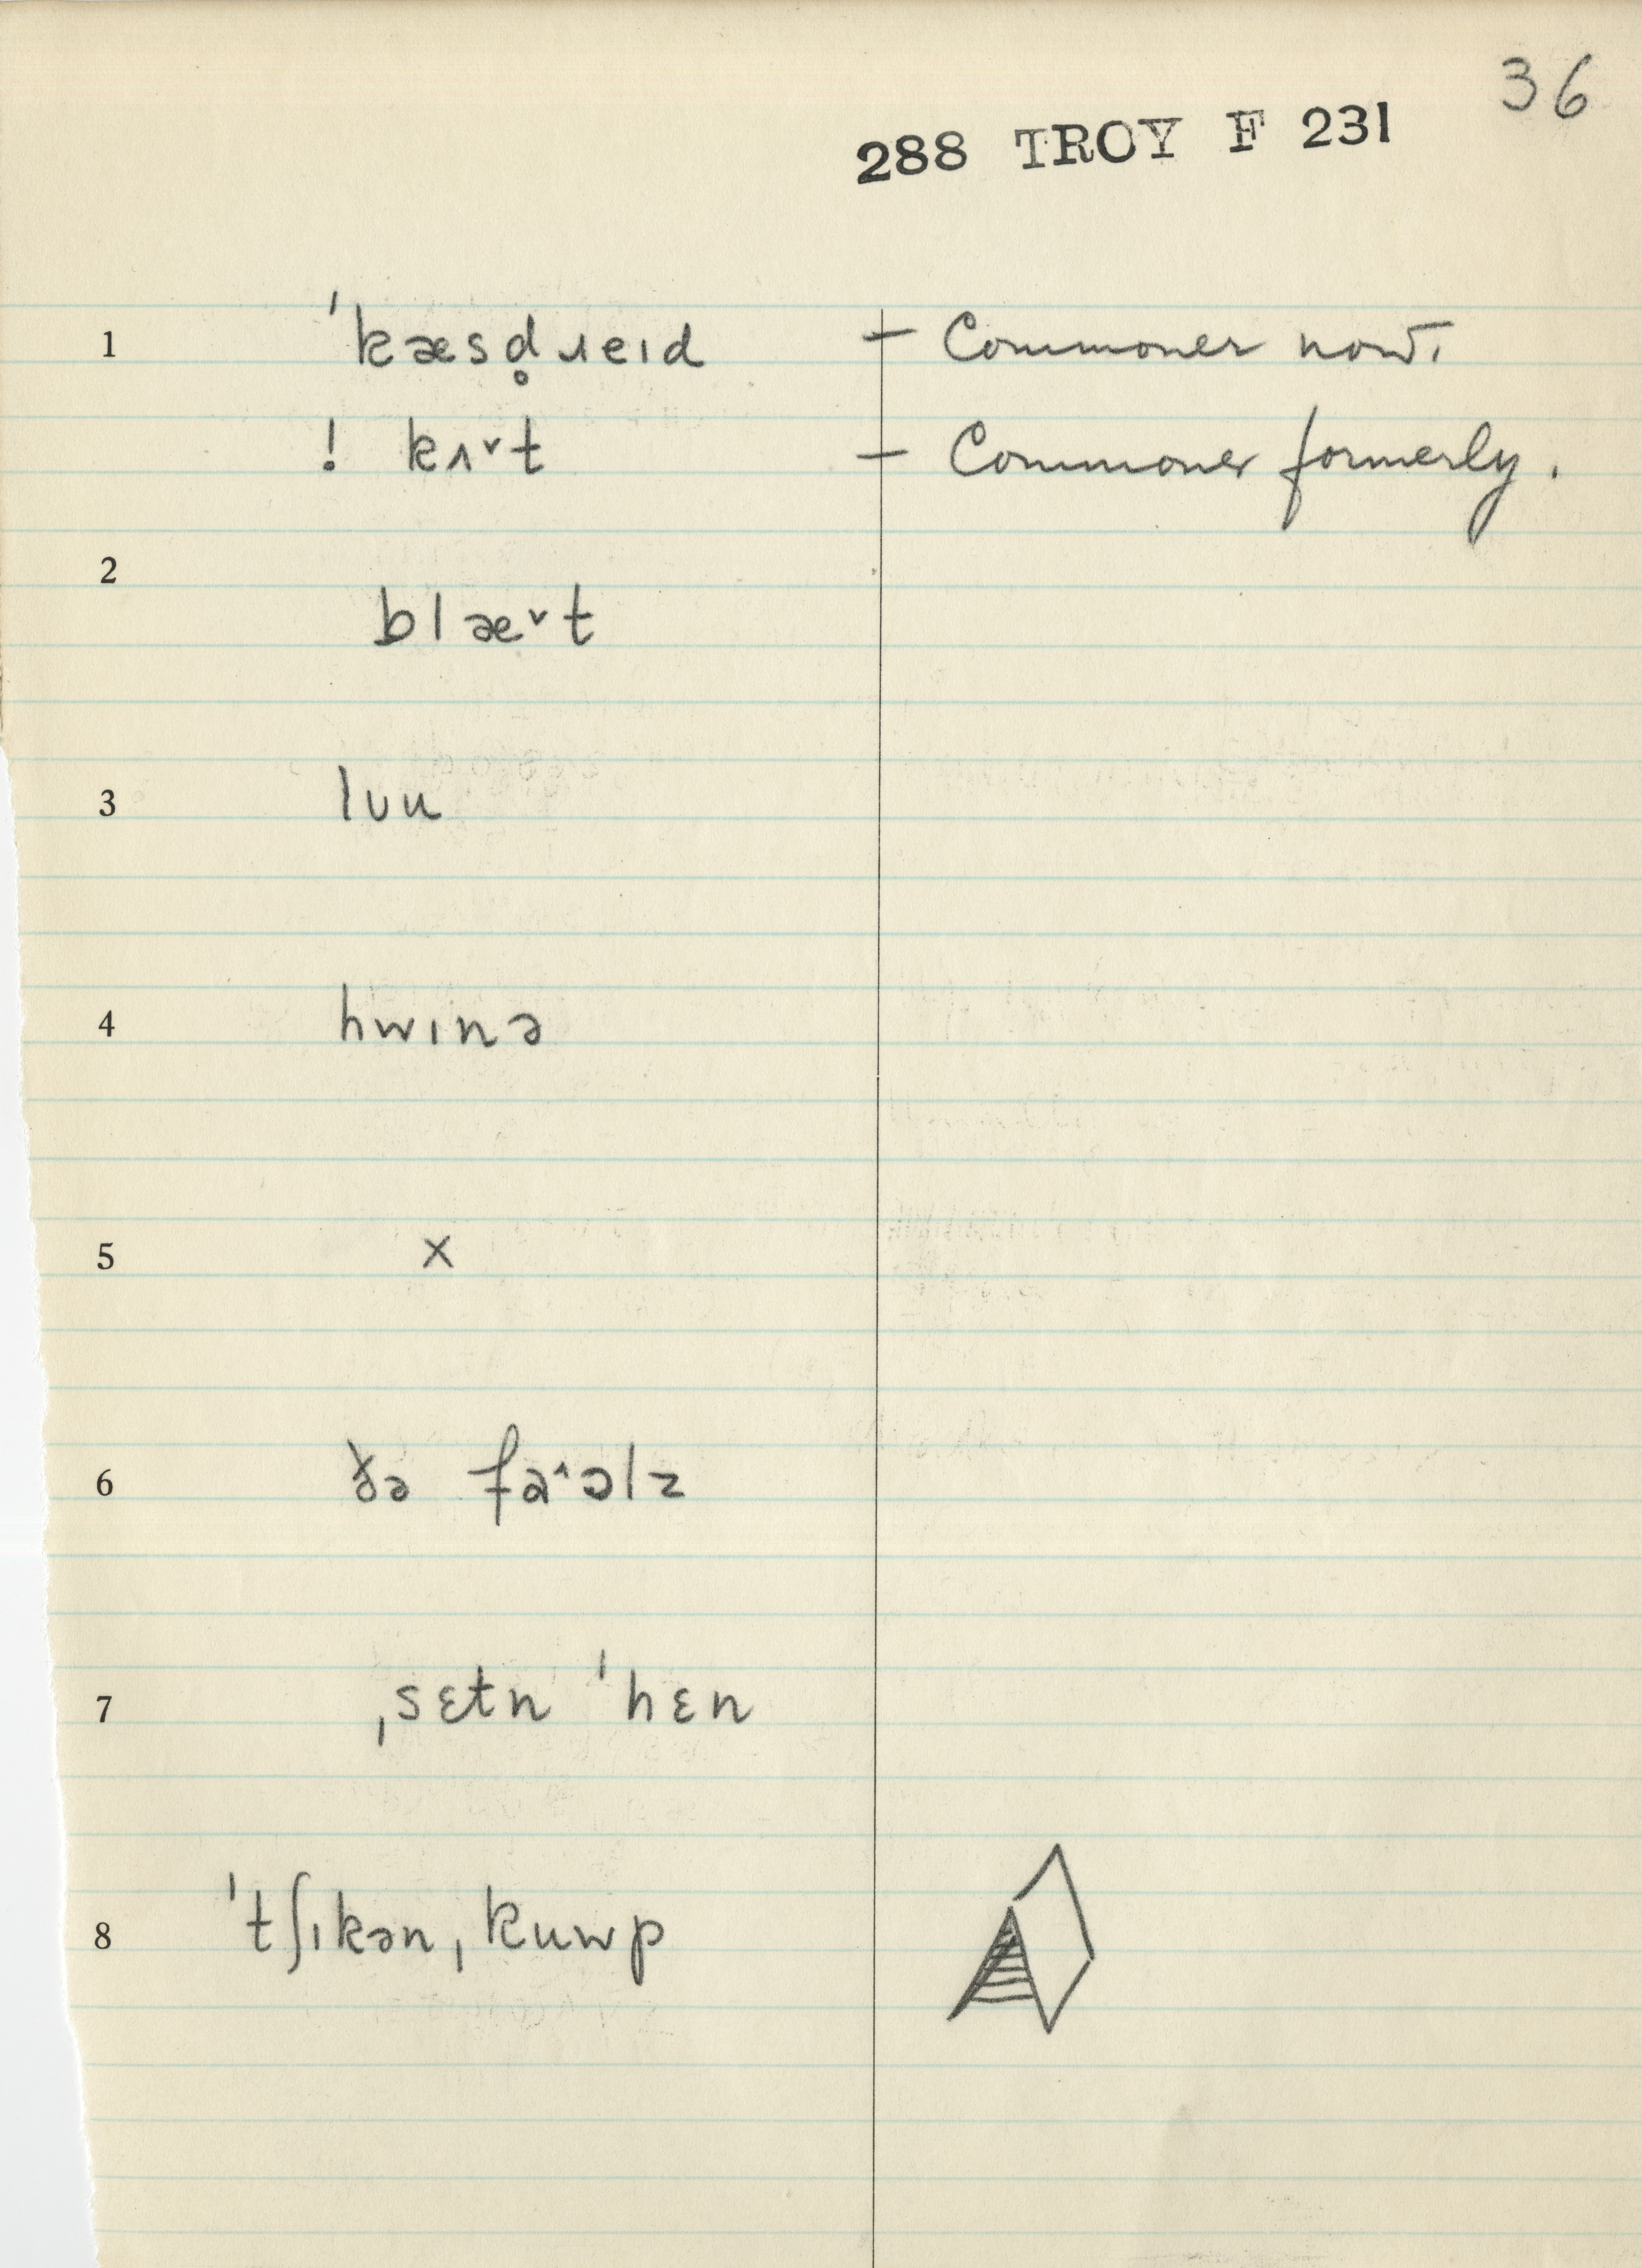 36
288 TROY F 231
1 ˈkæsd̥ɹeɪd – Commoner now.
! kʌ˅t – Commoner formerly.
2
blæ˅t
3 lʊu
4 hwɪnə
5 x
6 ðə fa˄əlz
7 ˌsɛtn ˈhɛn
8 ˈtʃɪkənˌkuwp